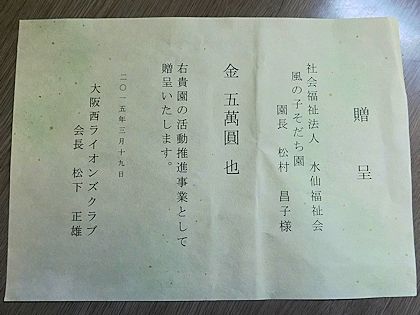 贈呈
社会福祉法人 水仙福祉会
風の子そだち園
園長 松村 昌子様
金 五萬圓 也
右貴園の活動推進事業として
贈呈いたします。
二〇一五年三月十九日
大阪西ライオンズクラブ
会長 松下 正雄